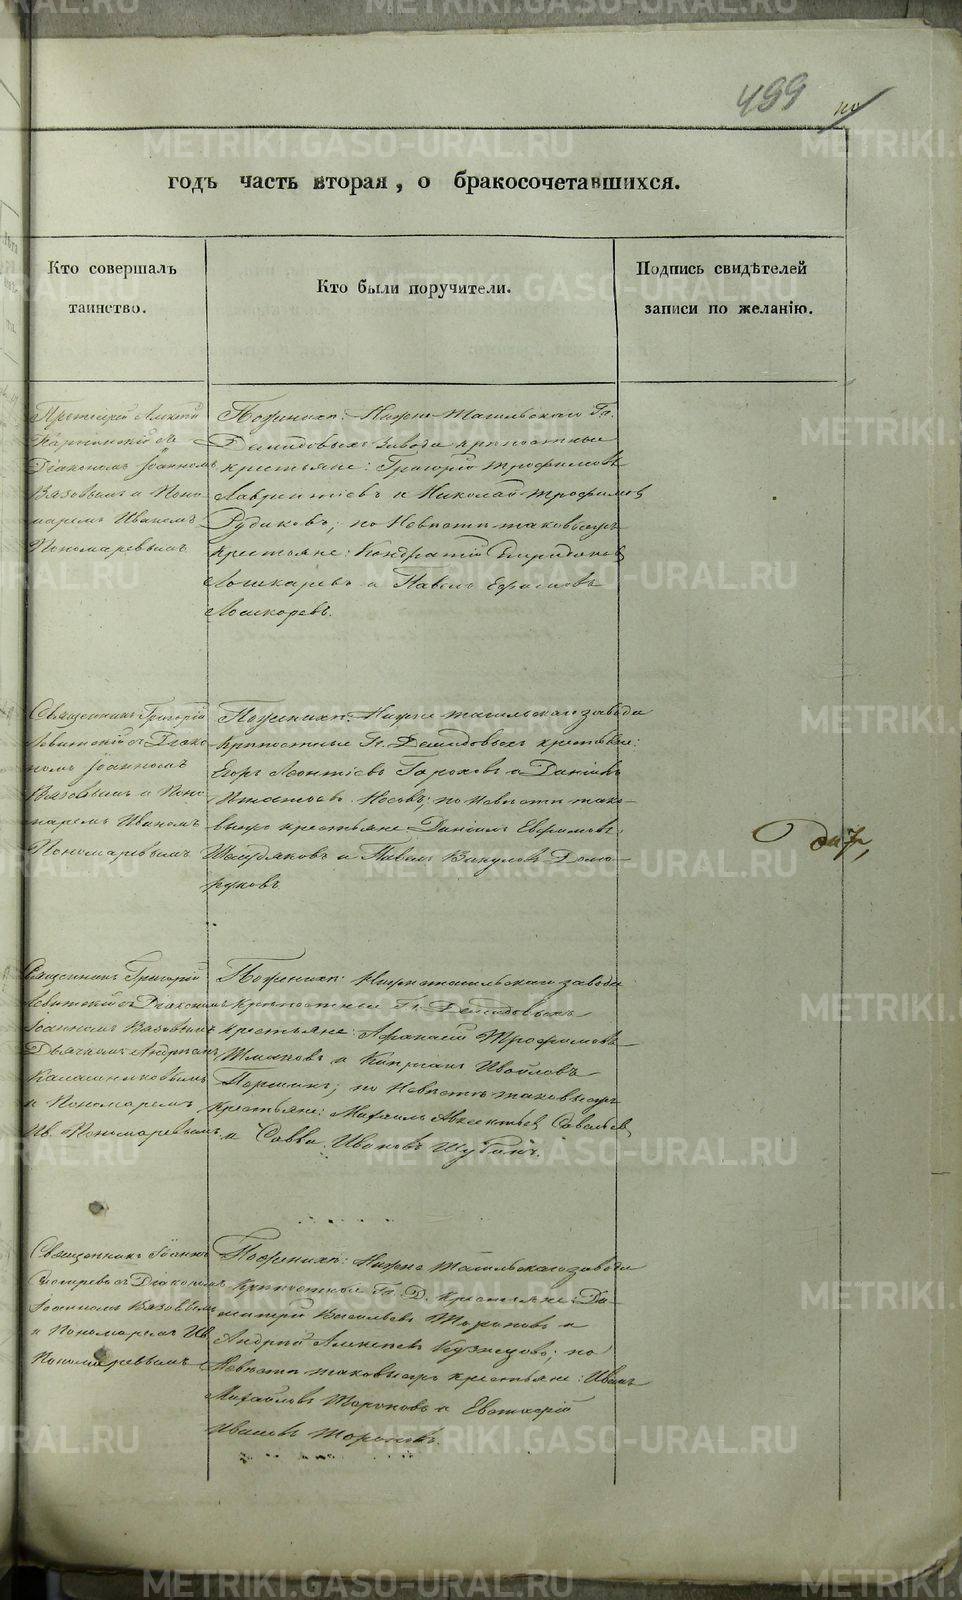 499
годъ часть вторая, о бракосочетавшихся.
Кто совершалъ
таинство.
Кто были поручители.
Подпись свидѣтелей
записи по желанію.
Діакономъ Іоанномъ
Вязовымъ и Поно-
маремъ Иваномъ
Пономаревымъ
По женихѣ: Нижне Тагильскаго Гг.
Демидовыхъ завода крѣпостные
крестьяне: Григорій Трофимовъ
Лаврентіевъ и Николай Трофимовъ
Рудаковъ; по Невѣстѣ таковыеже
крестьяне: Кондратій Спиридоновъ
Лошкаревъ и Павелъ Ефимовъ
Лошкоревъ.
Священникъ Григорій
Левитскій съ Діако-
номъ Іоанномъ
Вязовымъ и Поно-
маремъ Иваномъ
Пономаревымъ
По женихѣ: Нижне Тагильскаго завода
крѣпостные Гг. Демидовыхъ крестьяне:
Егоръ Леонтіевъ Гороховъ и Даніилъ
Носовъ; по Невѣстѣ тако-
выеже крестьяне Даніилъ Евфимовъ
и Павелъ Викуловъ Домо-
руковъ
Священникъ Григорій
Левитскій съ Діакономъ
Іоанномъ Вязовымъ
Дьячкомъ Андреемъ
Калашниковымъ
и Пономаремъ
Ив. Пономаревымъ
По женихѣ: Нижнетагильскаго завода
крѣпостные Гг. Демидовыхъ
крестьяне: Афанасій Трофимовъ
и Кипріанъ
по Невѣстѣ таковыеже
крестьяне: Михаилъ Авксентьевъ Савельевъ
и Савва Ивановъ Шубинъ.
Священникъ Іоаннъ
съ Діакономъ
Іоанномъ Вязовымъ
и Пономаремъ Ив.
Пономаревымъ
По женихѣ: Нижне Тагильскаго завода
крѣпостные Гг. Д. крестьяне: Ди-
митрій Васильевъ Тороповъ и
Андрей Алексѣевъ Кузнецовъ; по
Невѣстѣ таковыеже крестьяне: Иванъ
Михайловъ Тороповъ и Евстафій
Ивановъ Тороповъ.
METRIKI.GASO-URAL.RU